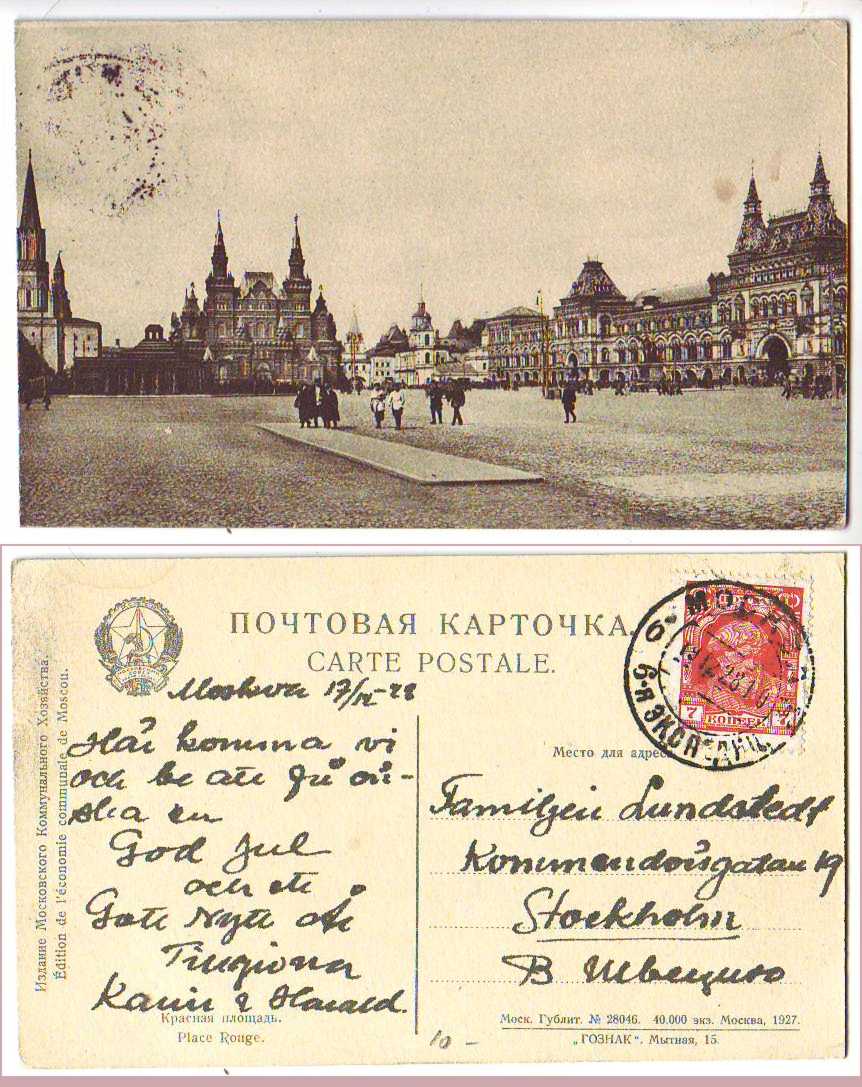 ПОЧТОВАЯ КАРТОЧКА.
CARTE POSTALE.
Издание Московского Коммунального Хозяйства.
Édition de l'économie communale de Moscou.
Moskva 17/ -28
Här komma vi
och be att få ön-
ska en
God Jul
och ett
Gott Nytt År
Karin & Harald.
Красная площадь.
Place Rouge.
МОСКВА
6-я ЭКСПЕДИЦ.
7 КОПЕЕК 7
Место для адреса
Familjen Lundstedt
Kommendörsgatan 19
Stockholm
В Швецию
Моск. Гублит. № 28046. 40.000 экз. Москва, 1927.
„ГОЗНАК“. Мытная, 15.
10 -